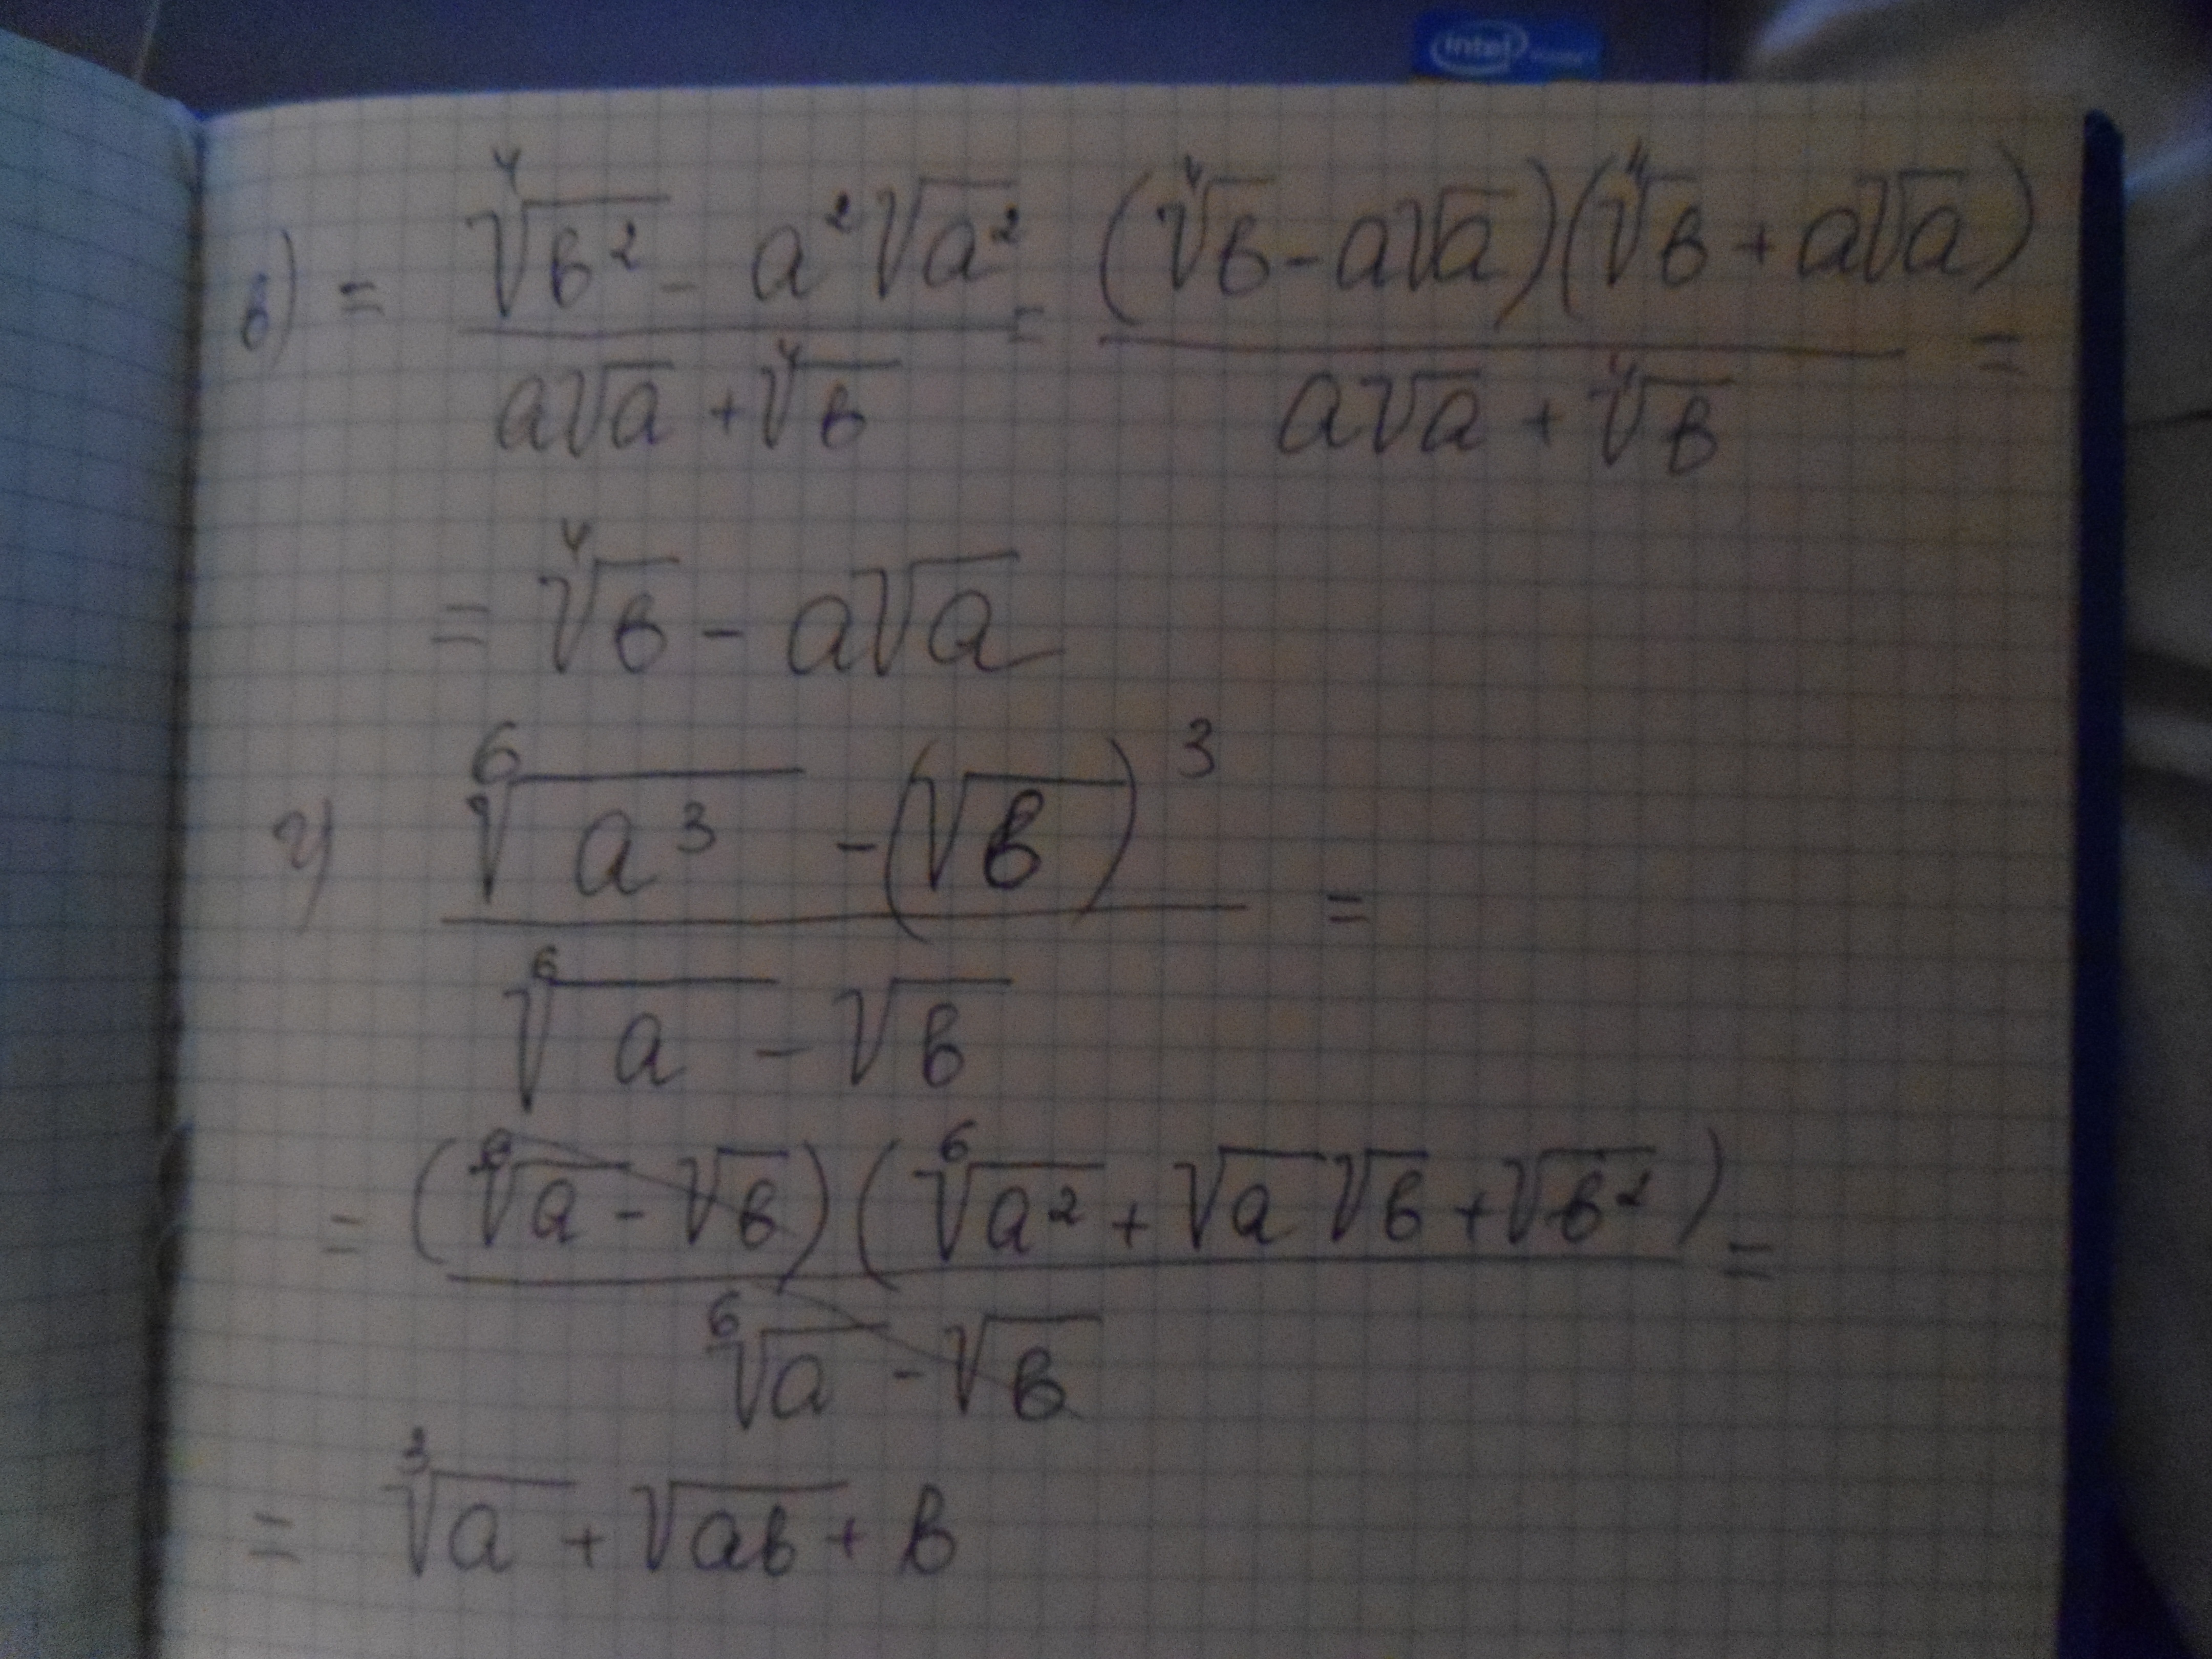 intel
в) = (⁴√в² - a²√a²)/(a√a + ⁴√в) = ((⁴√в - a√a)(⁴√в + a√a))/(a√a + ⁴√в) =
= ⁴√в - a√a
г) (⁶√a³ - (√в)³)/(⁶√a - √в) =
= ((⁶√a - √в)(⁶√a² + √a √в + √в²))/(⁶√a - √в) =
= ³√a + √aв + в